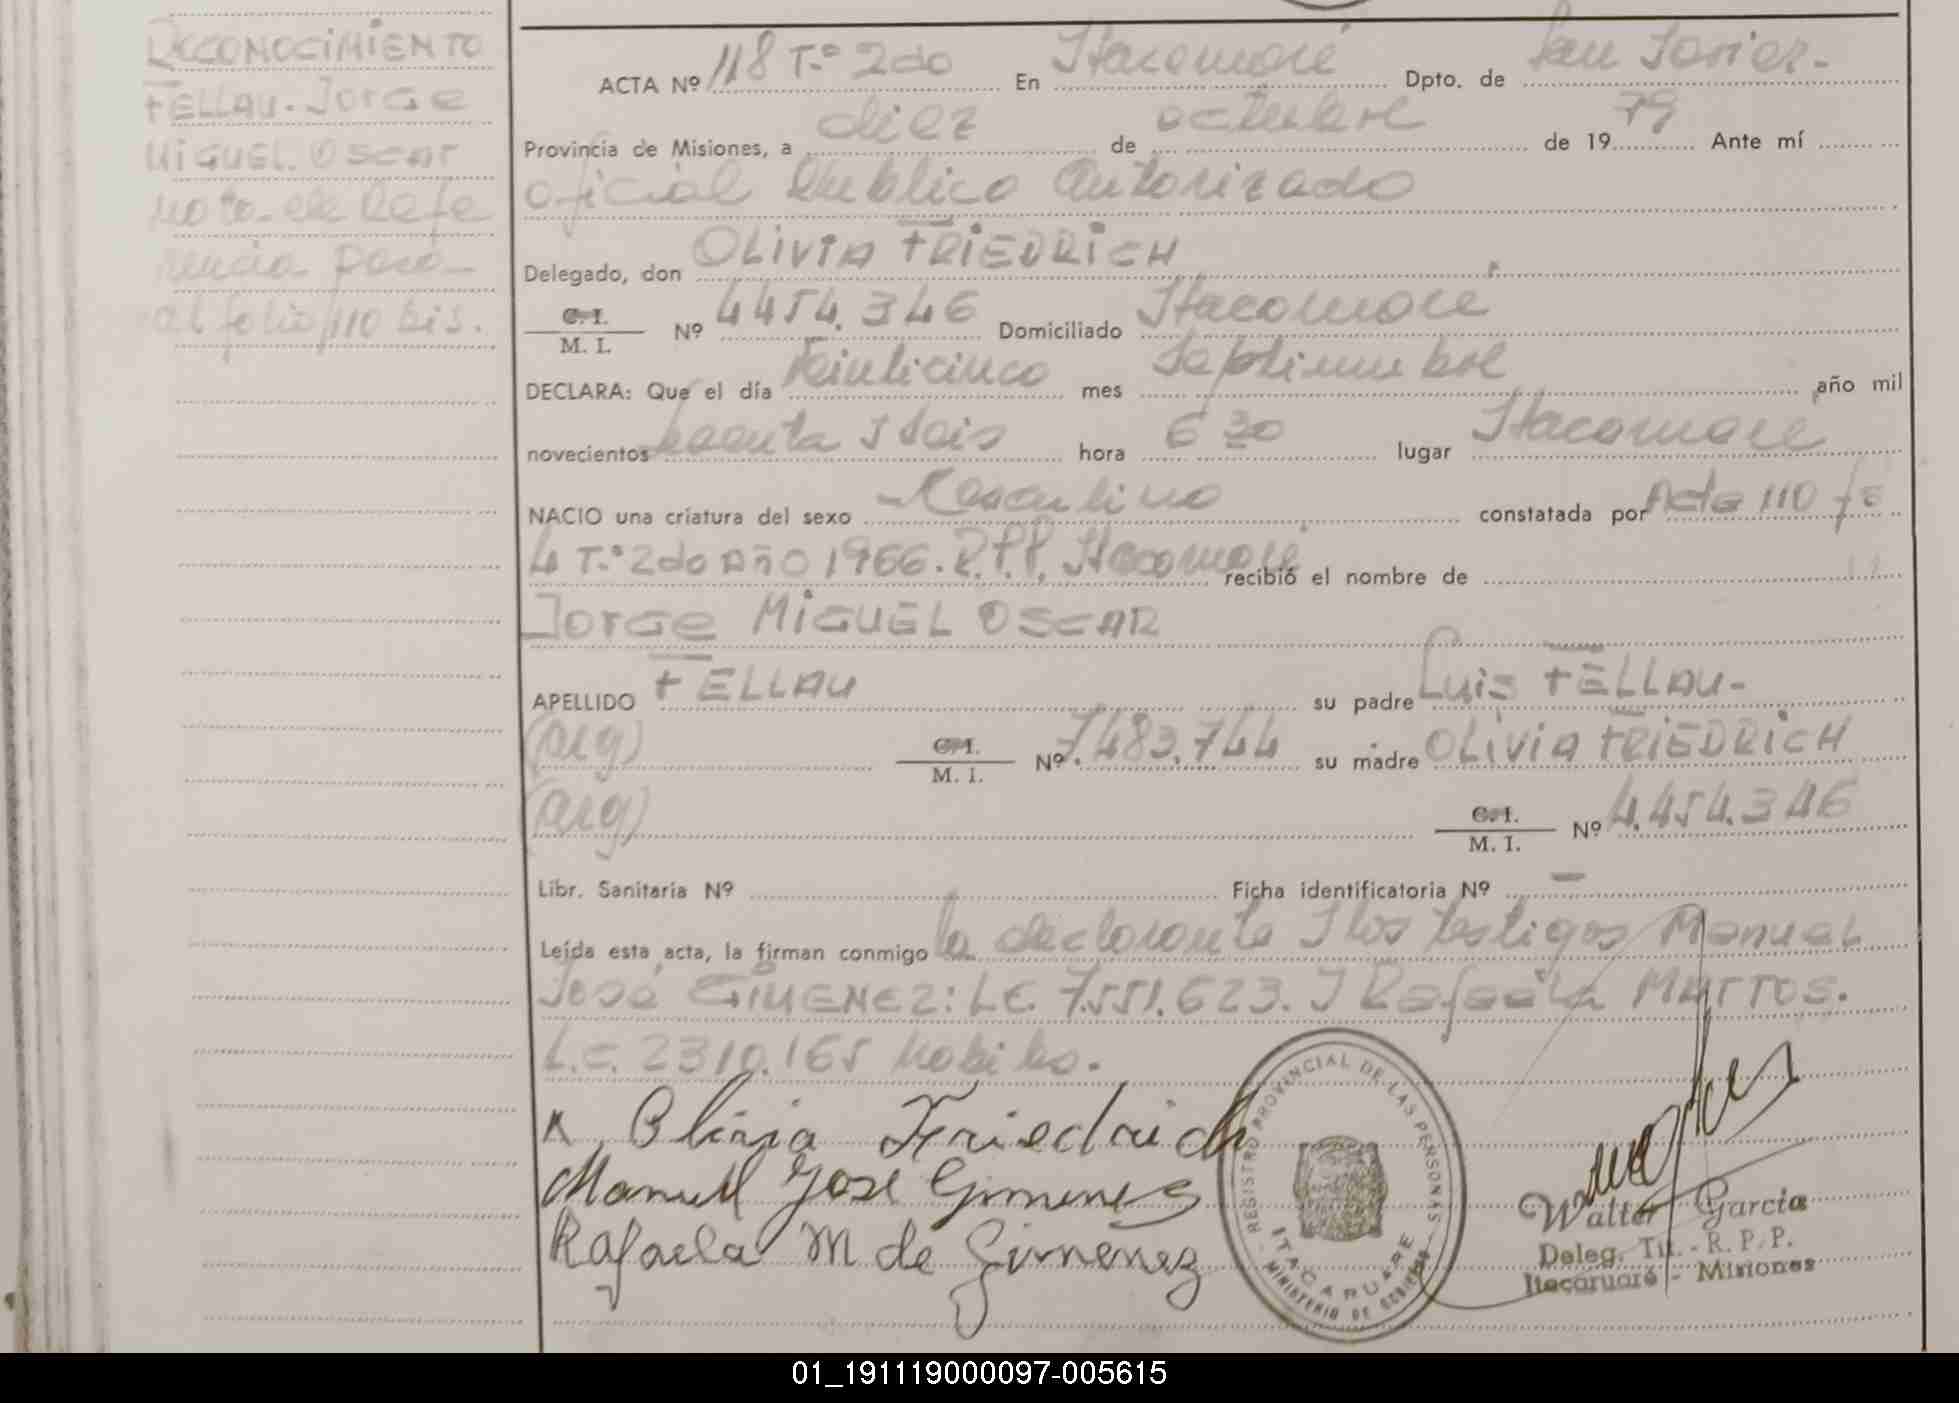 RECONOCIMIENTO
FELLAU. Jorge
MIGUEL OSCAR
nota de Refe
rencia para
al folio 110 bis.
ACTA Nº 118 T.º 2do En Itacaruaré Dpto. de San Javier.-
Provincia de Misiones, a diez de octubre de 1979 Ante mí
oficial Publico Autorizado
Delegado, don OLIVIA FRIEDRICH
C. I. / M. I. Nº 4454.346 Domiciliado Itacaruaré
DECLARA: Que el día Veinticinco mes Septiembre año mil
novecientos sesenta y seis hora 6 30 lugar Itacaruaré
NACIO una criatura del sexo Masculino constatada por Acta 110 fº
4 T.º 2do Año 1966. R.P.P. Itacaruaré recibió el nombre de
Jorge MIGUEL OSCAR
APELLIDO FELLAU su padre Luis FELLAU-
(arg) C. I. / M. I. Nº 7483.744 su madre OLIVIA FRIEDRICH
(arg) C. I. / M. I. Nº 4.454.346
Libr. Sanitaria Nº Ficha identificatoria Nº —
Leída esta acta, la firman conmigo la declarante y los testigos Manuel
José GIMENEZ: L.E. 7.551.623. y Rafaela MATTOS.
L.C. 2310.165
x Olivia Friedrich
Manuel Jose Gimenez
Rafaela M de Gimenez
REGISTRO PROVINCIAL DE LAS PERSONAS
ITACARUARE
MINISTERIO DE GOBIERNO
Walter Garcia
Deleg. Tit. - R. P. P.
Itacaruaré - Misiones
01_191119000097-005615